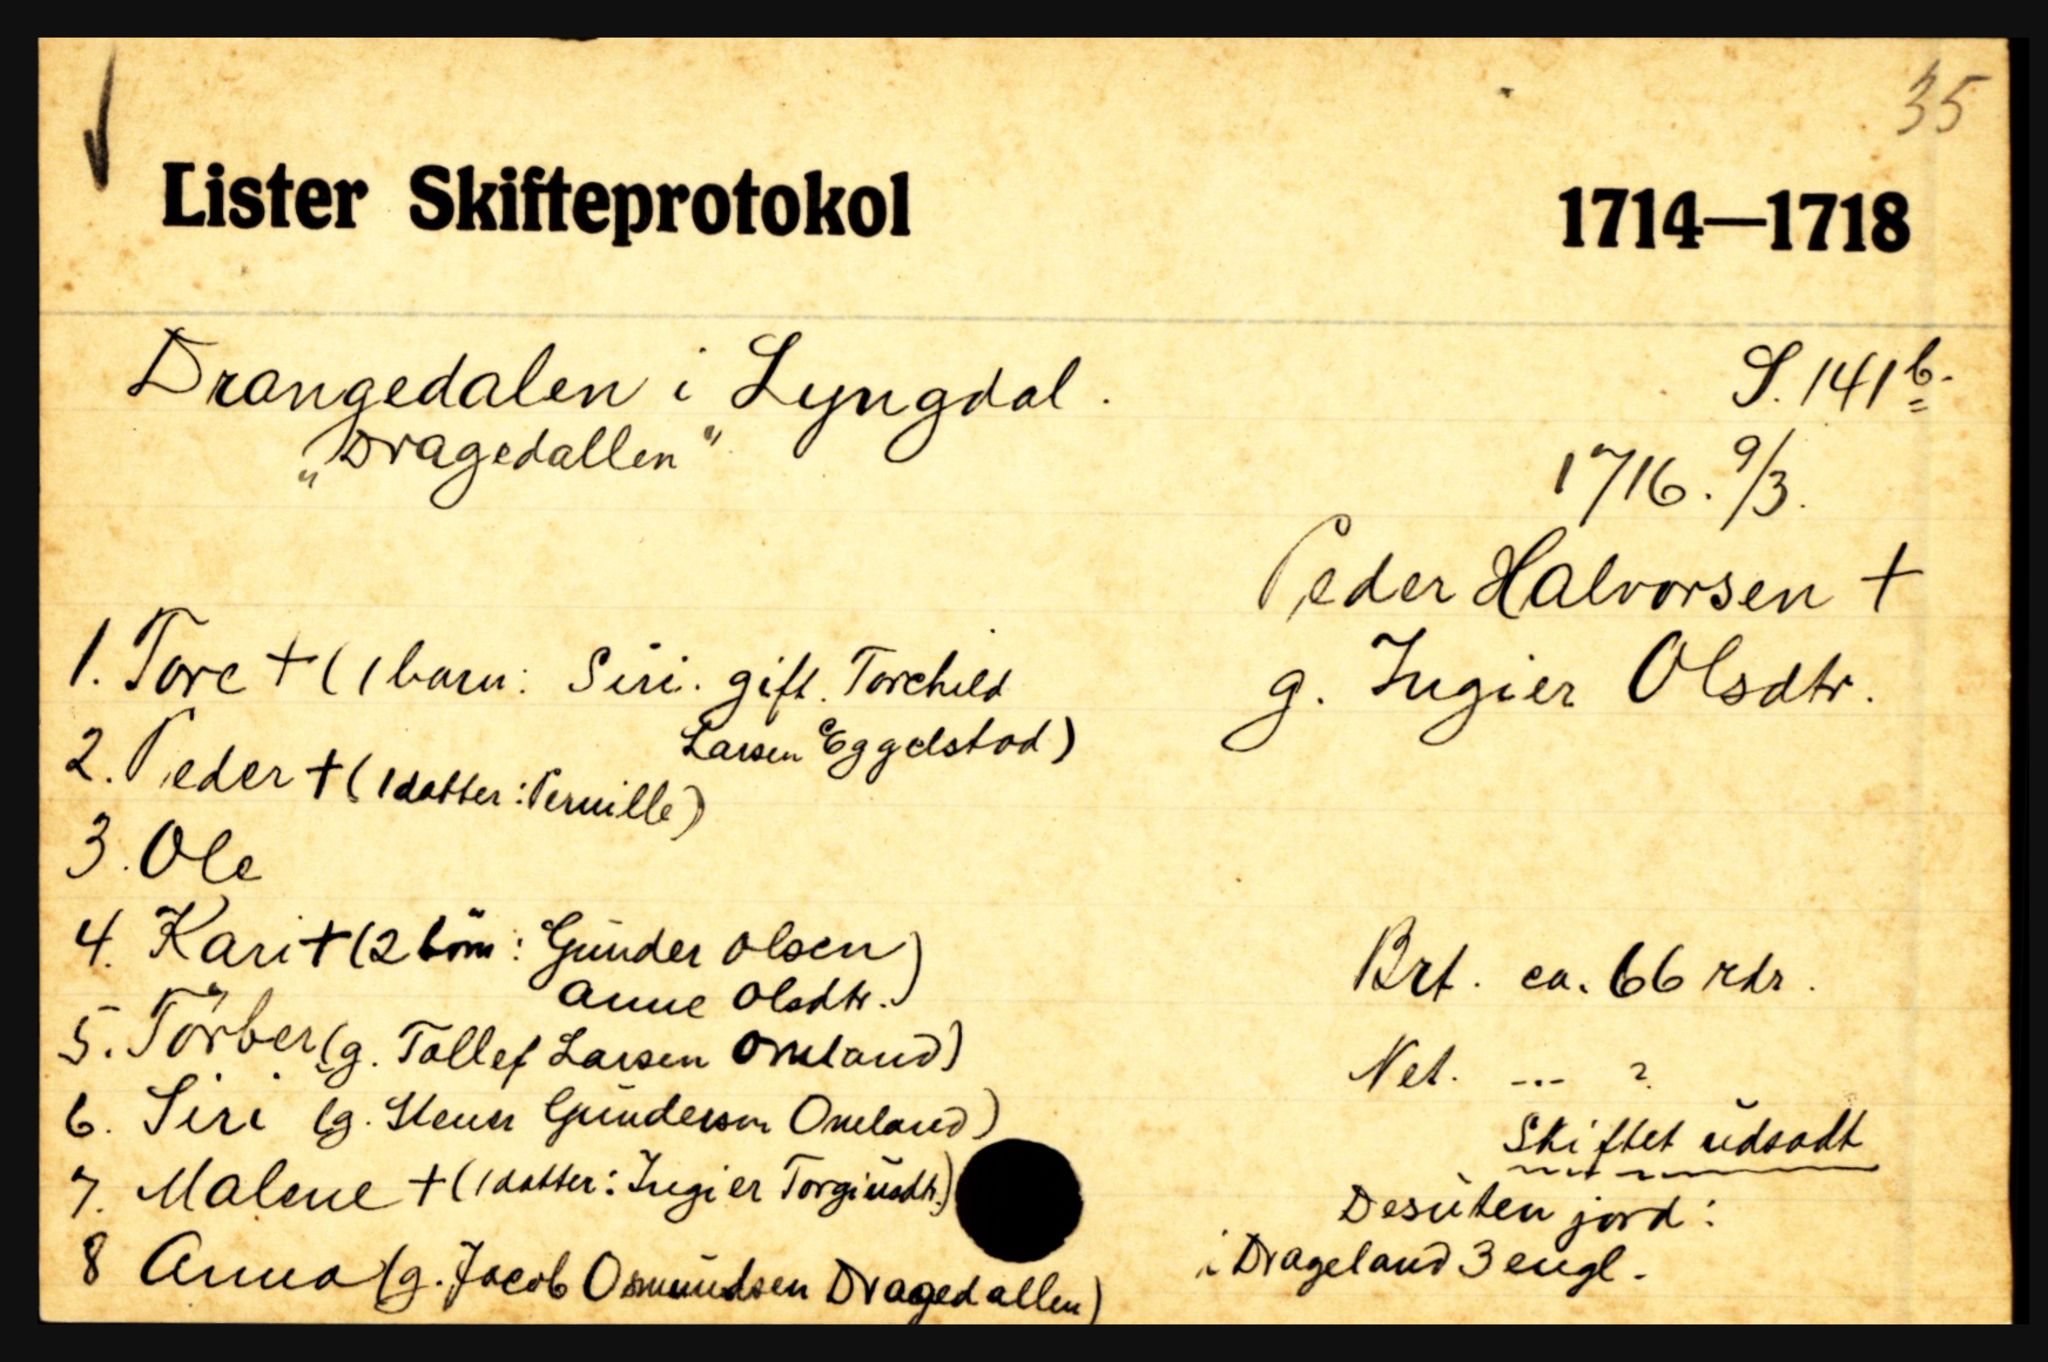 35
Lister Skifteprotokol 1714—1718
Drangedalen i Lyngdal. S. 141 b.
„Dragedallen" 
1716. 9/3.
Peder Halvorsen +
g. Ingier Olsdtr.
1. Tore + (1 barn: Siri. gift. Torchild
Larsen Eggelstad)
2. Peder + (1 datter: Pernille)
3. Ole
4. Kari + (2 börn: Gunder Olsen
Anne Olsdtr.)
5. Törber (g. Tollef Larsen Omland)
6. Siri (g. Steen Gundersen Omeland)
7. Malene + (1 datter: Ingier Torgiusdtr.)
8 Anna (g. Jacob Osmundsen Dragedallen)
Brt. ca. 66 rdr.
Net. --- ?
Skiftet udsadt
Desuten jord:
i Drageland 3 engl.